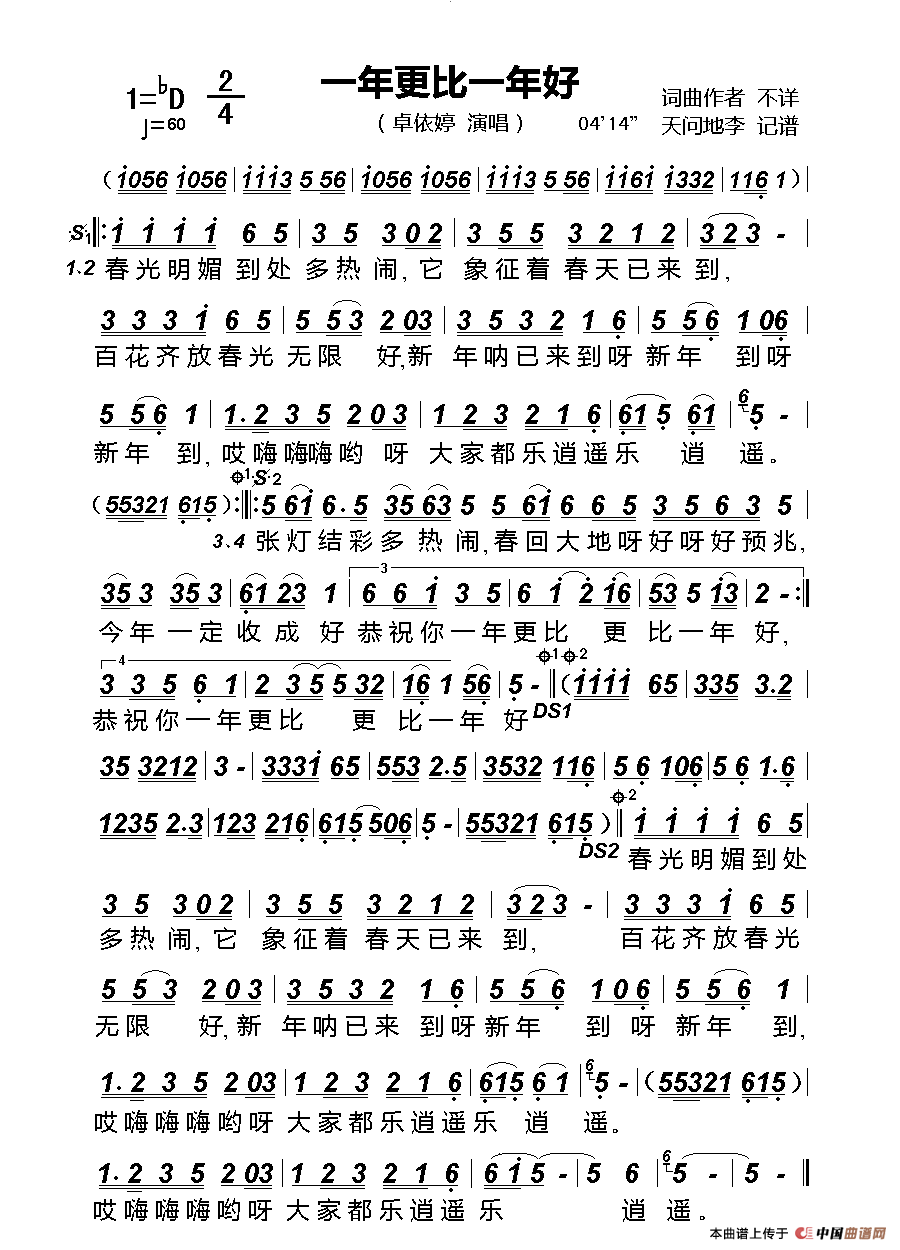 一年更比一年好
1=♭D 2/4
♩=60
（卓依婷 演唱） 04'14"
词曲作者 不详
天问地李 记谱
（i056 i056 | iii3 5 56 | i056 i056 | iii3 5 56 | ii6i i332 | 116 1 ）
𝄋1 ‖: i i i i 6 5 | 3 5 3 0 2 | 3 5 5 3 2 1 2 | 3 2 3 - |
1.2 春光明媚 到处 多热闹,它 象征着 春天已来 到,
3 3 3 i 6 5 | 5 5 3 2 03 | 3 5 3 2 1 6 | 5 5 6 1 06 |
百花齐放春光 无限 好,新 年呐已来到呀 新年 到呀
5 5 6 1 | 1. 2 3 5 2 0 3 | 1 2 3 2 1 6 | 6 1 5 61 | 6 5 - |
新年 到,哎嗨嗨嗨哟 呀 大家都乐逍遥乐 逍 遥。
（55321 615）:‖: 𝄌1 𝄋2 5 6i 6. 5 35 63 | 5 5 6i 6 6 5 3 5 6 3 5 |
3、4 张灯结彩多 热 闹,春回大地呀好呀好预兆,
35 3 35 3 | 61 23 1 | 3 6 6 i 3 5 | 6 i 2 i6 | 53 5 i3 | 2 - :‖
今年 一定 收 成 好 恭祝你一年更比 更 比一年 好,
4 3 3 5 6 1 | 2 3 5 5 32 | 16 1 56 | 5 - ‖ 𝄌1𝄌2（iiii 65 | 335 3.2 |
恭祝你一年更比 更 比一年 好 DS1
35 3212 | 3 - | 333i 65 | 553 2.5 | 3532 116 | 5 6 106 | 5 6 1.6 |
1235 2.3 | 123 216 | 615 506 | 5 - | 55321 615 ）‖ 𝄌2 i i i i 6 5 |
DS2 春光明媚到处
3 5 3 0 2 | 3 5 5 3 2 1 2 | 3 2 3 - | 3 3 3 i 6 5 |
多热闹,它 象征着 春天已来 到, 百花齐放春光
5 5 3 2 0 3 | 3 5 3 2 1 6 | 5 5 6 1 0 6 | 5 5 6 1 |
无限 好,新 年呐已来 到呀新年 到 呀 新年 到,
1. 2 3 5 2 03 | 1 2 3 2 1 6 | 615 6 1 | 6 5 - |（55321 615）|
哎嗨嗨嗨哟呀 大家都乐逍遥乐 逍 遥。
1. 2 3 5 2 03 | 1 2 3 2 1 6 | 6 i 5 - | 5 6 | 6 5 - | 5 - ‖
哎嗨嗨嗨哟呀 大家都乐逍遥 乐 逍 遥。
本曲谱上传于 中国曲谱网